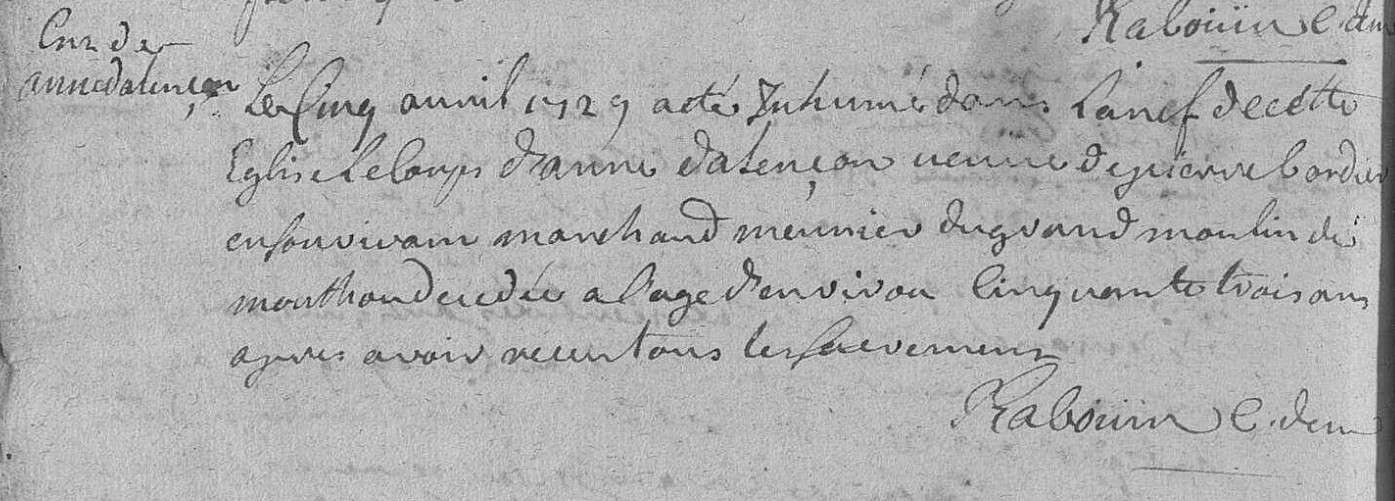 Rabouin C. de m
Ent. de
anne dalençon
Le Cinq auvril 1729 a eté Inhumé dans La nef de cette
Eglise Le Corps d'anne d'alençon veuve de pierre bordier
en son vivant marchand meunier du grand moulin de
monthou decedée a l'age d'environ Cinquante trois ans
apres avoir receu tous les sacremens
Rabouin C. de m